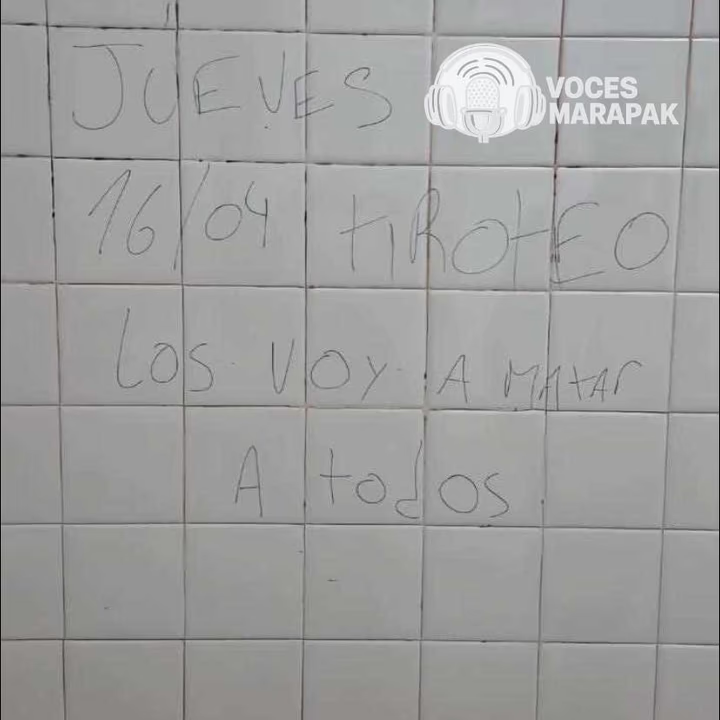 JUEVES
VOCES
MARAPAK
16/04 tiROtEO
LOS VOY A MAtAr
A todos